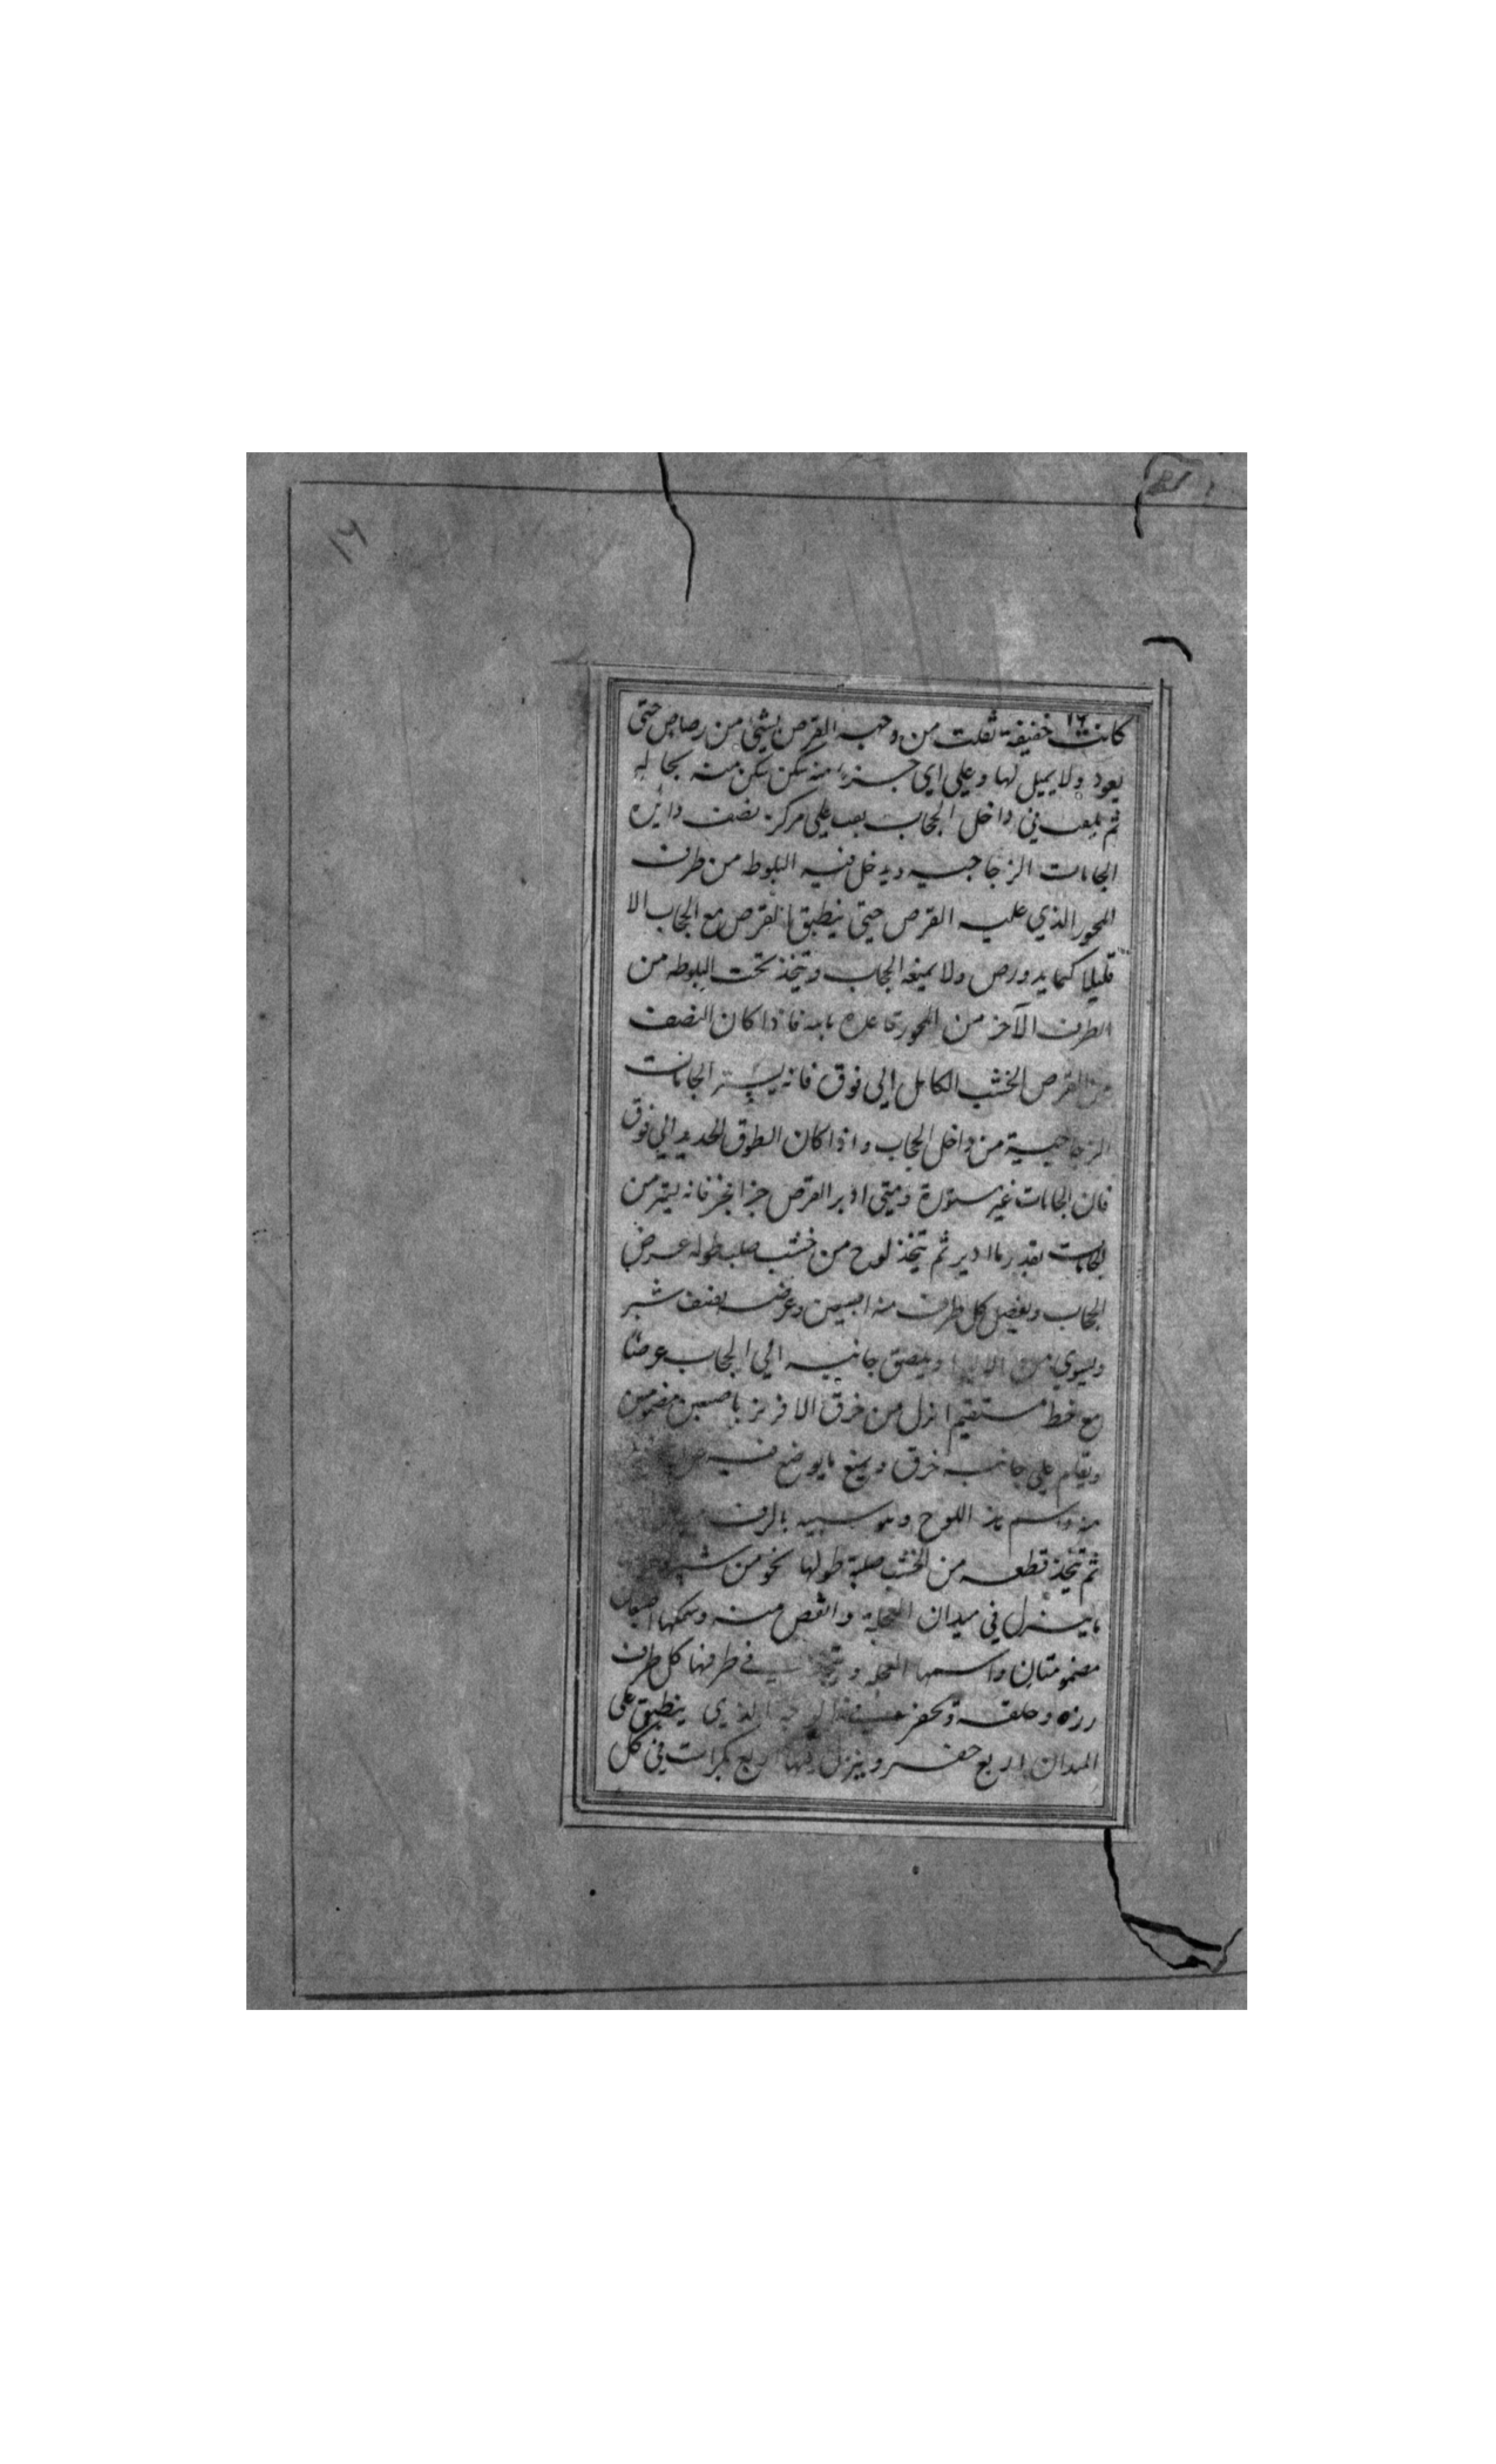 ١٦
كانت خفيفة ثقلت من وجه القرص بشئ من رصاص حتى
يعود ولا يميل لها وعلى اي جزء منه سكن سكن منه بحاله
ثم في داخل الحجاب على مركز نصف دايرة
الجامات الزجاجيه ويدخل فيه البلوط من طرف
المحور الذي عليه القرص حتى ينطبق القرص مع الحجاب الا
قليلا كما يدور ولا يمنعه الحجاب وتتخذ تحت البلوطه من
الطرف الآخر من المحور فاذا كان النصف
من القرص الخشب الكامل الى فوق فانه يستر الجامات
الزجاجية من داخل الحجاب واذا كان الطوق الحديد الى فوق
فان الجامات غير مستورة ومتى ادير القرص فانه يستر من
الجامات بقدر ما ادير ثم تتخذ لوح من خشب صلب طوله عرض
الحجاب ويفضل كل طرف منه وعرضه نصف شبر
ويسوي من ويلصق جانبه الى الحجاب عرضا
مع خط مستقيم انزل من خرق الافريز باصبعين مضمومتين
ويقام على جانبه خرق ويمنع ما يوضع فيه من
اللوح بالرف
ثم تتخذ قطعه من الخشب صلبة طولها نحو من شبر
ما ينزل في ميدان العجلة وانقص منه وسمكها اصبعان
مضمومتان واسمها العجله في طرفيها كل طرف
رزه وحلقه وتحفر الذي ينطبق على
الميدان اربع حفر وينزل فيها اربع بكرات في كل